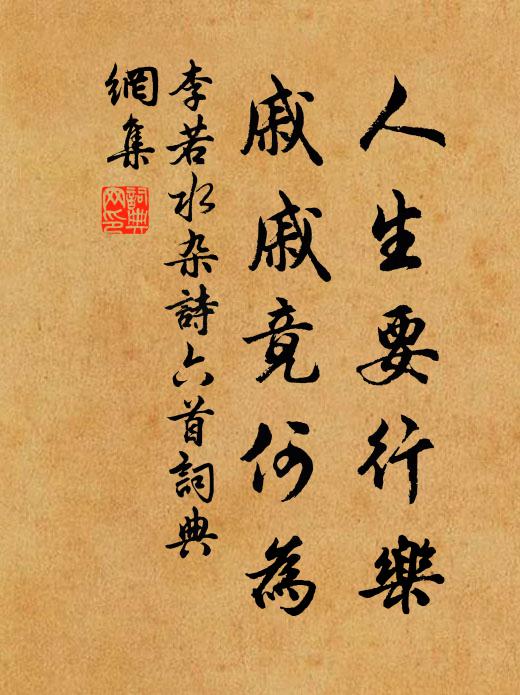 人生要行樂
戚戚竟何為
李若水杂詩六首詞典
網集
詞典
网印